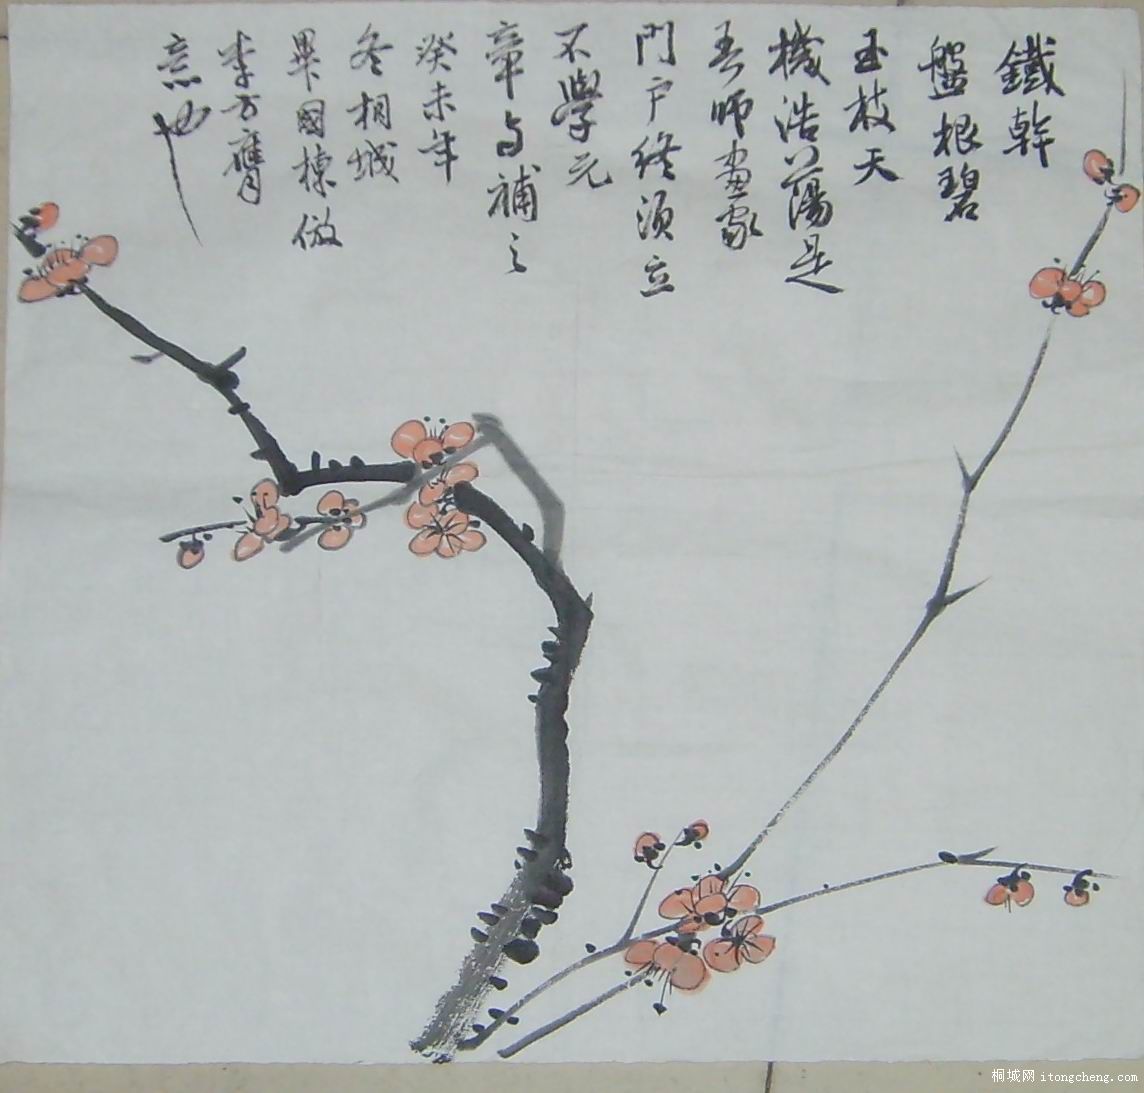 鐵幹
盤根碧
玉枝天
機浩蕩是
吾師畫家
門戶終須立
不學元
章与補之
癸未年
冬相城
畢國棟倣
李方膺
意也
桐城网 itongcheng.com